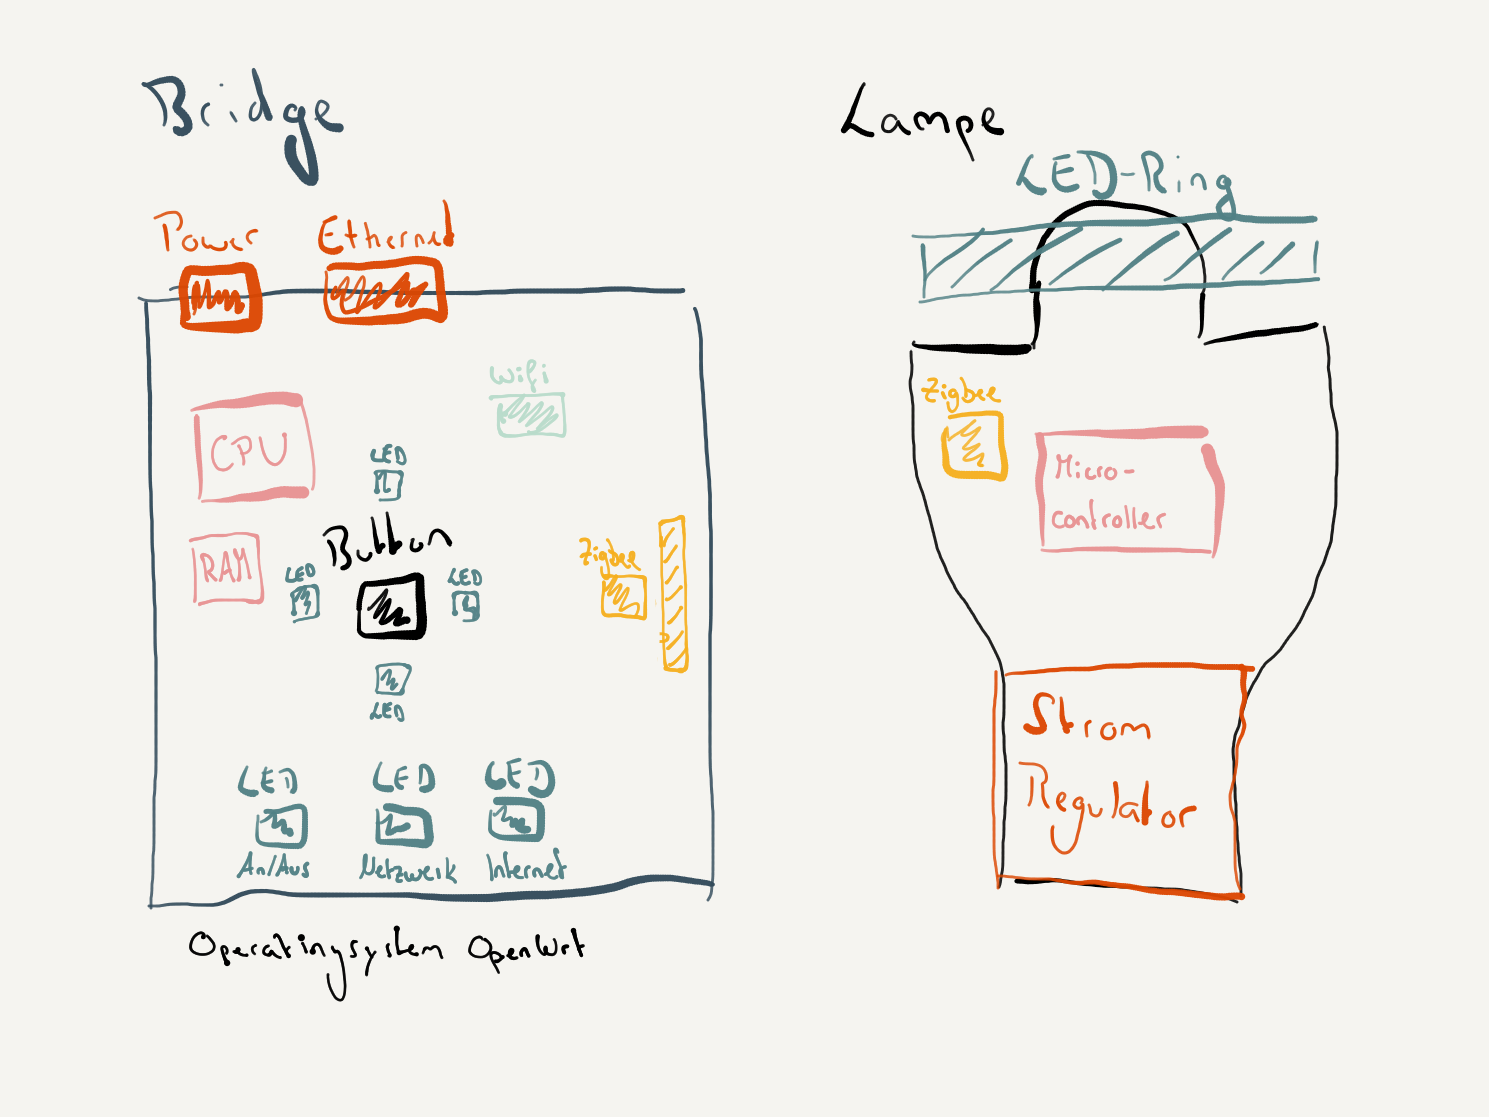 Bridge
Power
Ethernet
Wifi
CPU
LED
Button
RAM
LED
LED
Zigbee
LED
LED
LED
LED
An/Aus
Netzwerk
Internet
Operatingsystem OpenWrt
Lampe
LED-Ring
Zigbee
Micro-
controller
Strom
Regulator